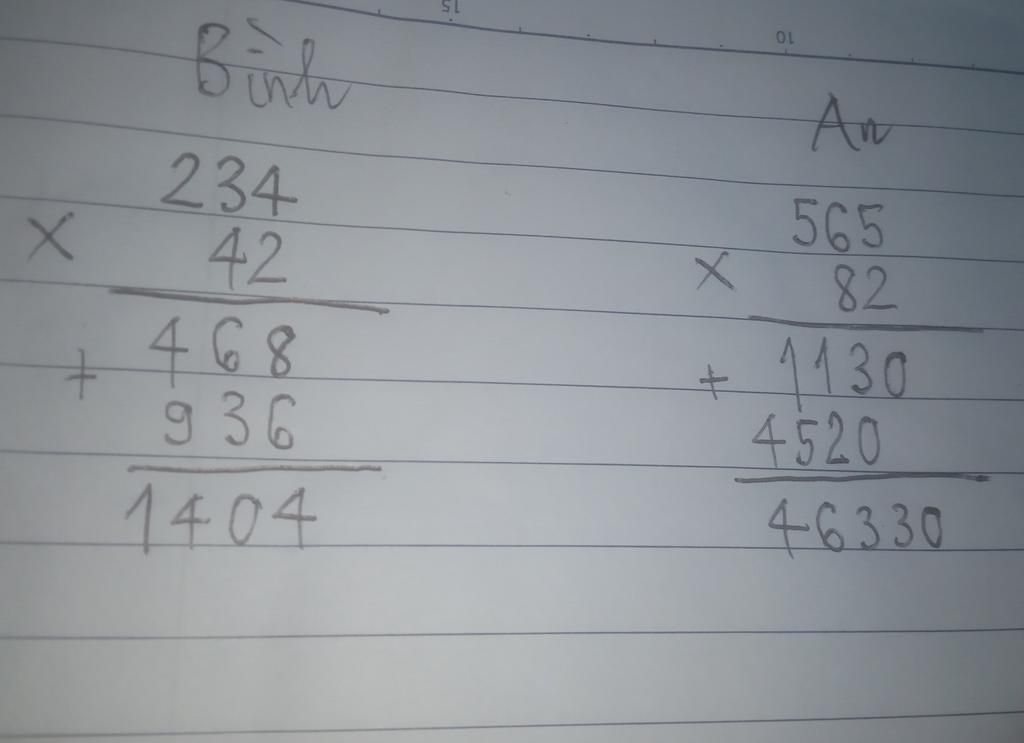 15
10
Bình
234
x 42
+ 468
936
1404
An
565
x 82
+ 1130
4520
46330